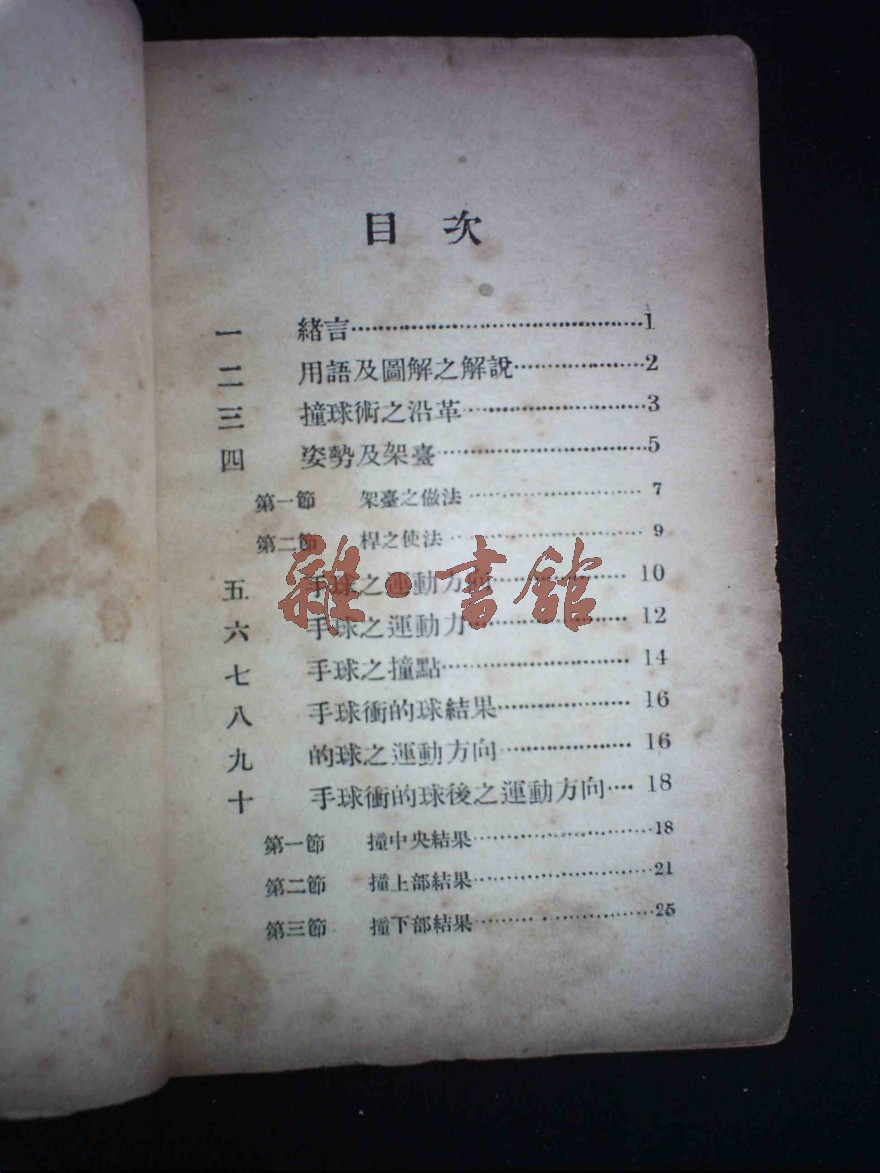 目次
一 緒言……………………………1
二 用語及圖解之解說………………2
三 撞球術之沿革……………………3
四 姿勢及架臺………………………5
第一節 架臺之做法…………………7
第二節 桿之使法……………………9
五 手球之運動方向…………………10
六 手球之運動力……………………12
七 手球之撞點………………………14
八 手球衝的球結果…………………16
九 的球之運動方向…………………16
十 手球衝的球後之運動方向……18
第一節 撞中央結果…………………18
第二節 撞上部結果…………………21
第三節 撞下部結果…………………25
雜·書館